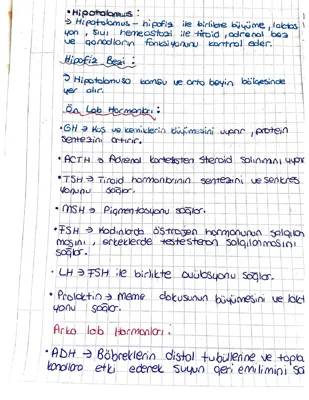 • Hipotalamus:
→ Hipotalamus - hipofiz ile birlikte büyüme, laktas
yon, sıvı hemeostazi ile tiroid, adrenal bez
ve gonadların fonksiyonunu kontrol eder.
Hipofiz Bezi:
→ Hipotalamusa komsu ve orta beyin bölgesinde
yer alır.
Ön Lob Hormonları:
• GH → Kas ve kemiklerin büyümesini uyarır, protein
sentezini artırır.
• ACTH → Adrenal korteksten steroid salınımını uyar
• TSH → Tiroid hormonlarının sentezini ve senkres
yonunu sağlar.
• MSH → Pigmentasyonu sağlar.
• FSH → Kadınlarda östrojen hormonunun salgılan
masını, erkeklerde testesteron salgılanmasını
sağlar.
• LH → FSH ile birlikte ovülasyonu sağlar.
• Prolaktin → meme dokusunun büyümesini ve lakt
yonu sağlar.
Arka lob Hormonları:
• ADH → Böbreklerin distal tubüllerine ve topla
kanallara etki ederek suyun geri emilimini sa